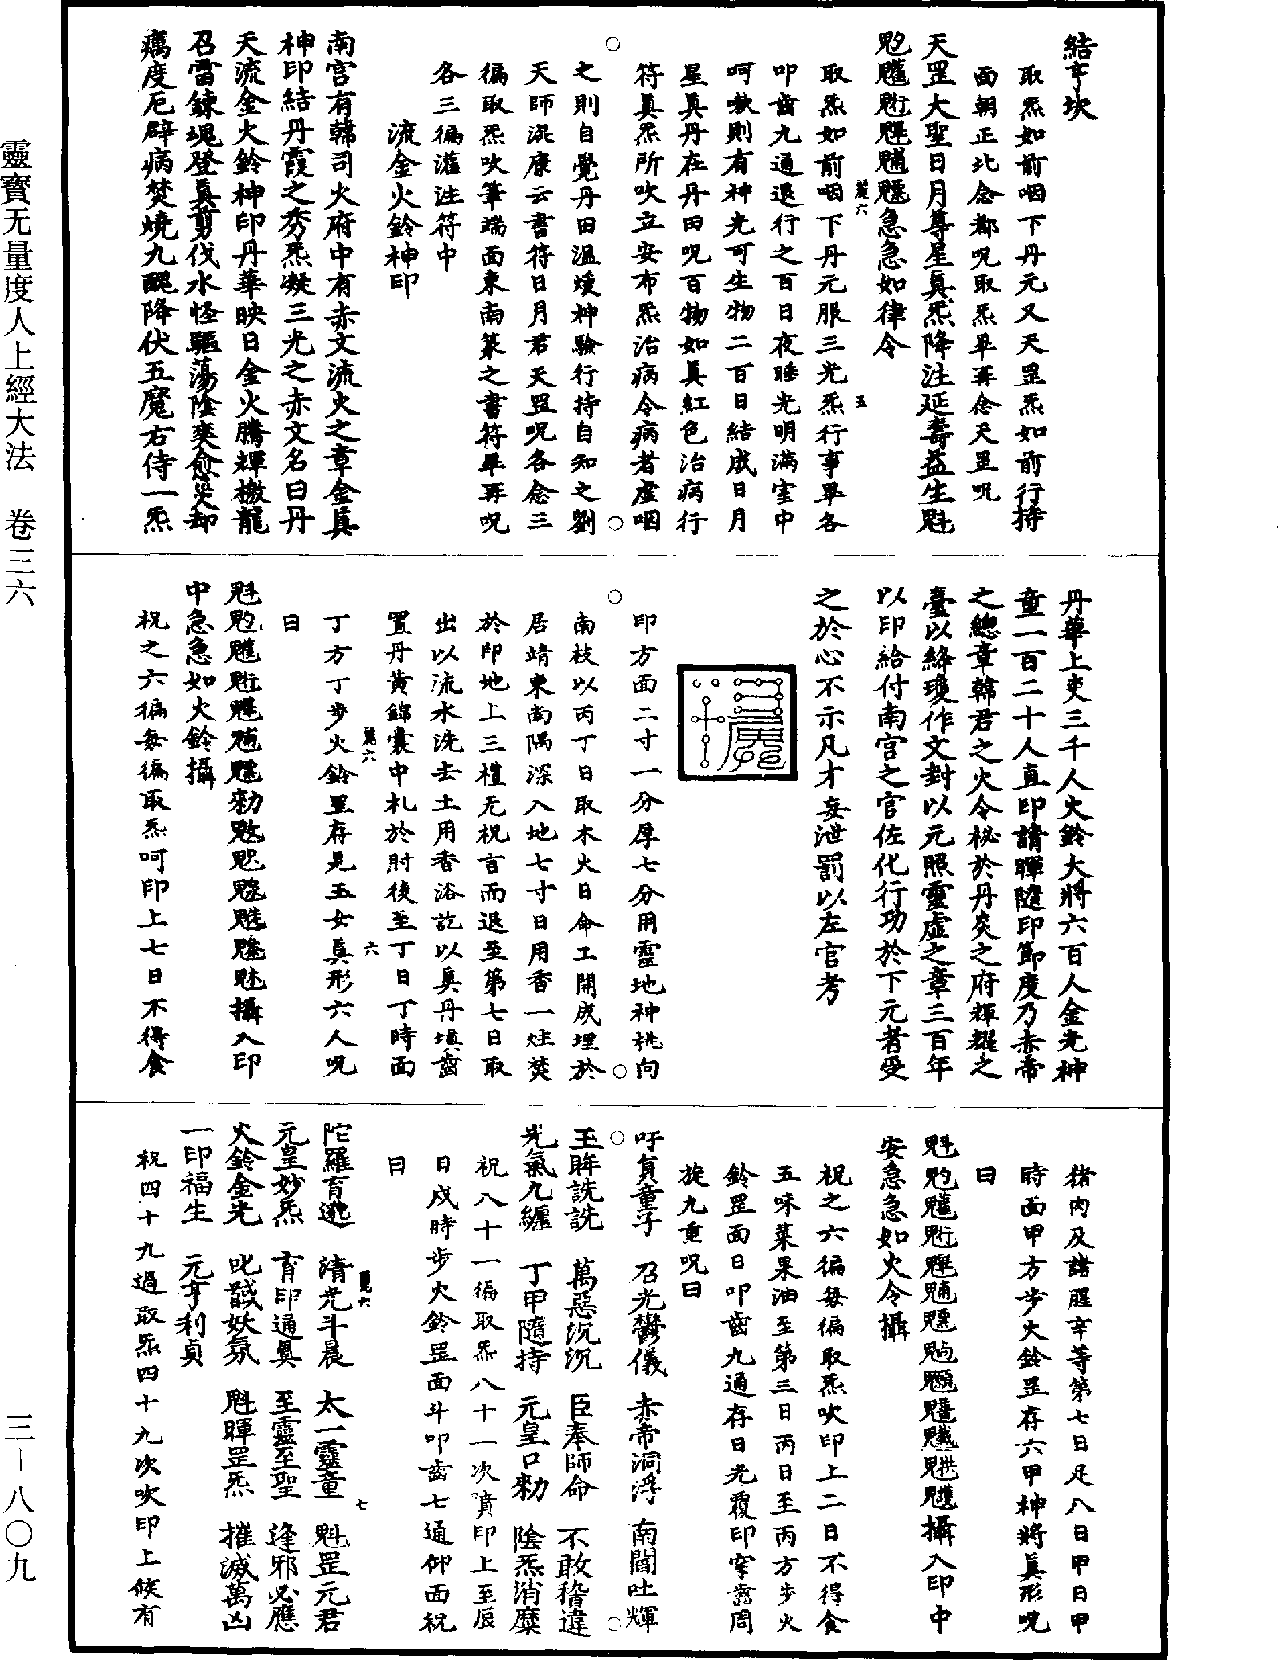 靈寶无量度人上經大法　卷三六
三—八〇九
結亨坎
取炁如前咽下丹元又天罡炁如前行持
面朝正北念都呪取炁畢再念天罡呪
天罡大聖日月尊星真炁降注延壽益生魁
急急如律令
取炁如前咽下丹元服三光炁行事畢各
叩齒九通退行之百日夜睡光明滿室中
呵噀則有神光可生物二百日結成日月
星真丹在丹田呪百物如真紅色治病行
符真炁所吹立安布炁治病令病者虛咽
之則自覺丹田溫煖神驗行持自知之劉
天師混康云書符日月君天罡呪各念三
徧取炁吹筆端面東南篆之書符畢再呪
各三徧灌注符中
流金火鈴神印
南宮有韓司火府中有赤文流火之章金真
神印結丹霞之秀炁凝三光之赤文名曰丹
天流金火鈴神印丹華映日金火騰輝檄龍
召雷鍊魂登真剪伐水怪驅蕩陰奕愈災却
癘度厄辟病焚燒九醜降伏五魔右侍一炁
丹華上吏三千人火鈴大將六百人金光神
童一百二十人直印請暉隨印節度乃赤帝
之總章韓君之火令秘於丹炎之府輝耀之
臺以絳瓊作文封以元照靈虛之章三百年
以印給付南宮之官佐化行功於下元者受
之於心不示凡才妄泄罰以左官考
印方面二寸一分厚七分用靈地神桃向
南枝以丙丁日取木火日命工開成埋於
居靖東南隅深入地七寸日用香一炷焚
於印地上三禮无祝言而退至第七日取
出以流水洗去土用香浴訖以真丹填齒
置丹黃錦囊中札於肘後至丁日丁時面
丁方丁步火鈴罡存見玉女真形六人呪
曰
勑攝入印
中急急如火鈴攝
祝之六徧每徧取炁呵印上七日不得食
猪肉及諸腥辛等第七日足八日甲日甲
時面甲方步火鈴罡存六甲神將真形呪
曰
攝入印中
安急急如火令攝
祝之六徧每徧取炁吹印上二日不得食
五味菜果油至第三日丙日至丙方步火
鈴罡面日叩齒九通存日光覆印字齒周
旋九重呪曰
吁負童子　召光鬱儀　赤帝洞浮　南閶吐輝
玉眸詵詵　萬惡沉沉　臣奉師命　不敢稽違
光氣九纏　丁甲隨持　元皇口勑　陰炁消糜
祝八十一徧取炁八十一次噴印上至辰
日戌時步火鈴罡面斗叩齒七通仰面祝
曰
陀羅育邈　清光斗晨　太一靈童　魁罡元君
元皇妙炁　育印通真　至靈至聖　逢邪必應
火鈴金光　叱馘妖氛　魁暉罡炁　摧滅萬凶
一印福生　元亨利貞
祝四十九過取炁四十九次吹印上候有